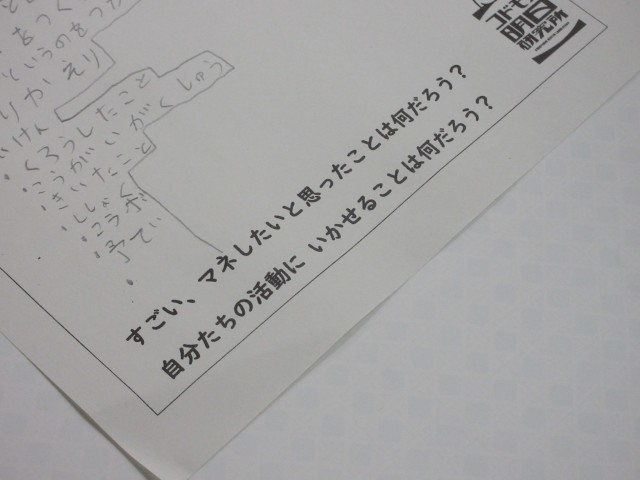 をつく
というのをつか
りかえり
くろうしたこと
こうがいがくしゅう
きいたこと
ししゃく
コラボ
予てい
すごい、マネしたいと思ったことは何だろう？
自分たちの活動に いかせることは何だろう？
コドモ
明日
研究所